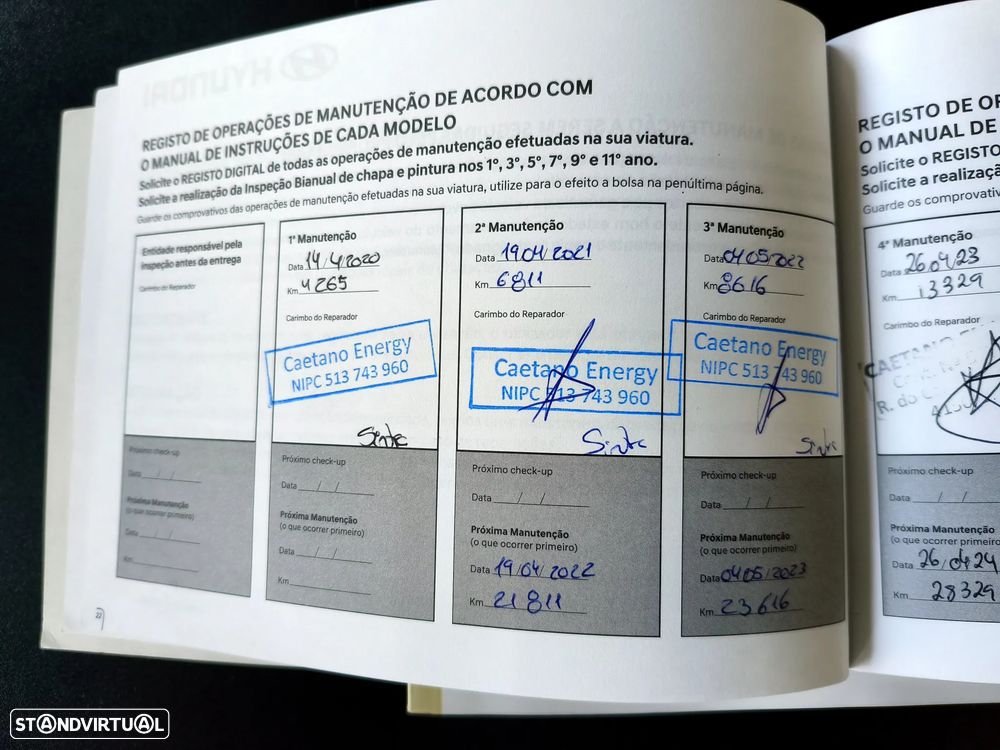 HYUNDAI
REGISTO DE OPERAÇÕES DE MANUTENÇÃO DE ACORDO COM
O MANUAL DE INSTRUÇÕES DE CADA MODELO
Solicite o REGISTO DIGITAL de todas as operações de manutenção efetuadas na sua viatura.
Solicite a realização da Inspeção Bianual de chapa e pintura nos 1º, 3º, 5º, 7º, 9º e 11º ano.
Guarde os comprovativos das operações de manutenção efetuadas na sua viatura, utilize para o efeito a bolsa na penúltima página.
Entidade responsável pela
inspeção antes da entrega
Carimbo do Reparador
Próximo check-up
Data / /
Próxima Manutenção
(o que ocorrer primeiro)
Data / /
Km
1ª Manutenção
Data 14/4/2020
Km 4265
Carimbo do Reparador
Caetano Energy
NIPC 513 743 960
Próximo check-up
Data / /
Próxima Manutenção
(o que ocorrer primeiro)
Data / /
Km
2ª Manutenção
Data 19/04/2021
Km 6811
Carimbo do Reparador
Caetano Energy
NIPC 513 743 960
Próximo check-up
Data / /
Próxima Manutenção
(o que ocorrer primeiro)
Data 19/04/2022
Km 21811
3ª Manutenção
Data 04/05/2022
Km 8616
Carimbo do Reparador
Caetano Energy
NIPC 513 743 960
Próximo check-up
Data / /
Próxima Manutenção
(o que ocorrer primeiro)
Data 04/05/2023
Km 23616
22
REGISTO DE OP
O MANUAL DE
Solicite o REGISTO
Solicite a realizaçã
Guarde os comprovativos
4ª Manutenção
Data 26/04/23
Km 13329
Carimbo do Reparador
CAETANO E
R. do C
Próximo check-up
Data / /
Próxima Manutenção
(o que ocorrer primeiro)
Data 26/04/24
Km 28329
STANDVIRTUAL